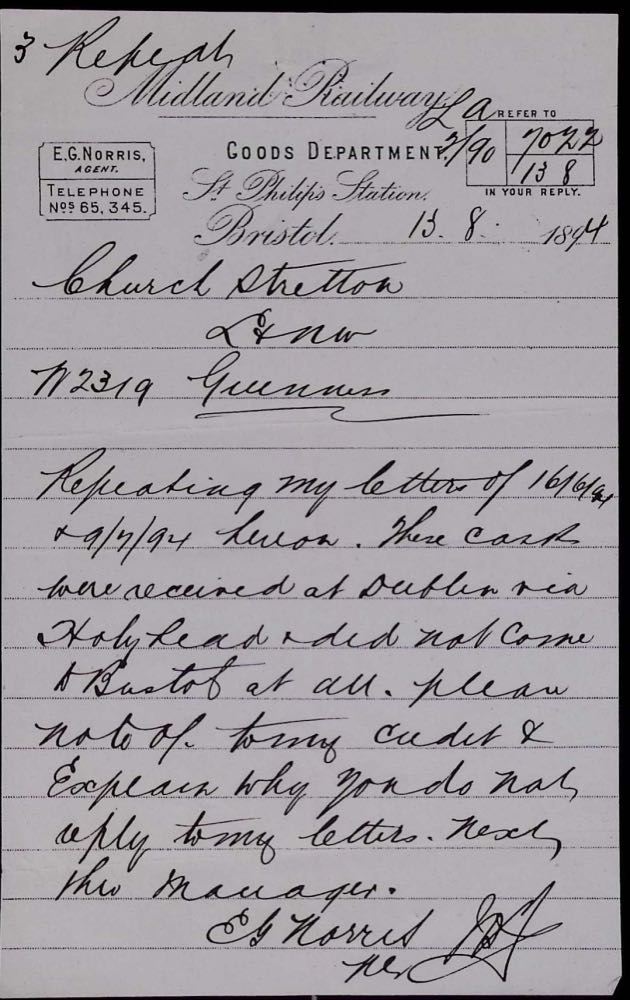 3 Repeat
Midland Railway
La
REFER TO
2/90 7022
13 8
IN YOUR REPLY.
E.G.NORRIS,
AGENT.
TELEPHONE
Nos 65, 345.
GOODS DEPARTMENT,
St Philip's Station,
Bristol. 13. 8. 1894
Church Stretton
L & NW
N2319 Guinness
Repeating my letters of 16/6/94
& 9/7/94 hereon. These casks
were received at Dublin via
Holyhead & did not come
to Bristol at all. please
note o/c. to my credit &
Explain why you do not
reply to my letters. Next
thro Manager.
EG Norris
per